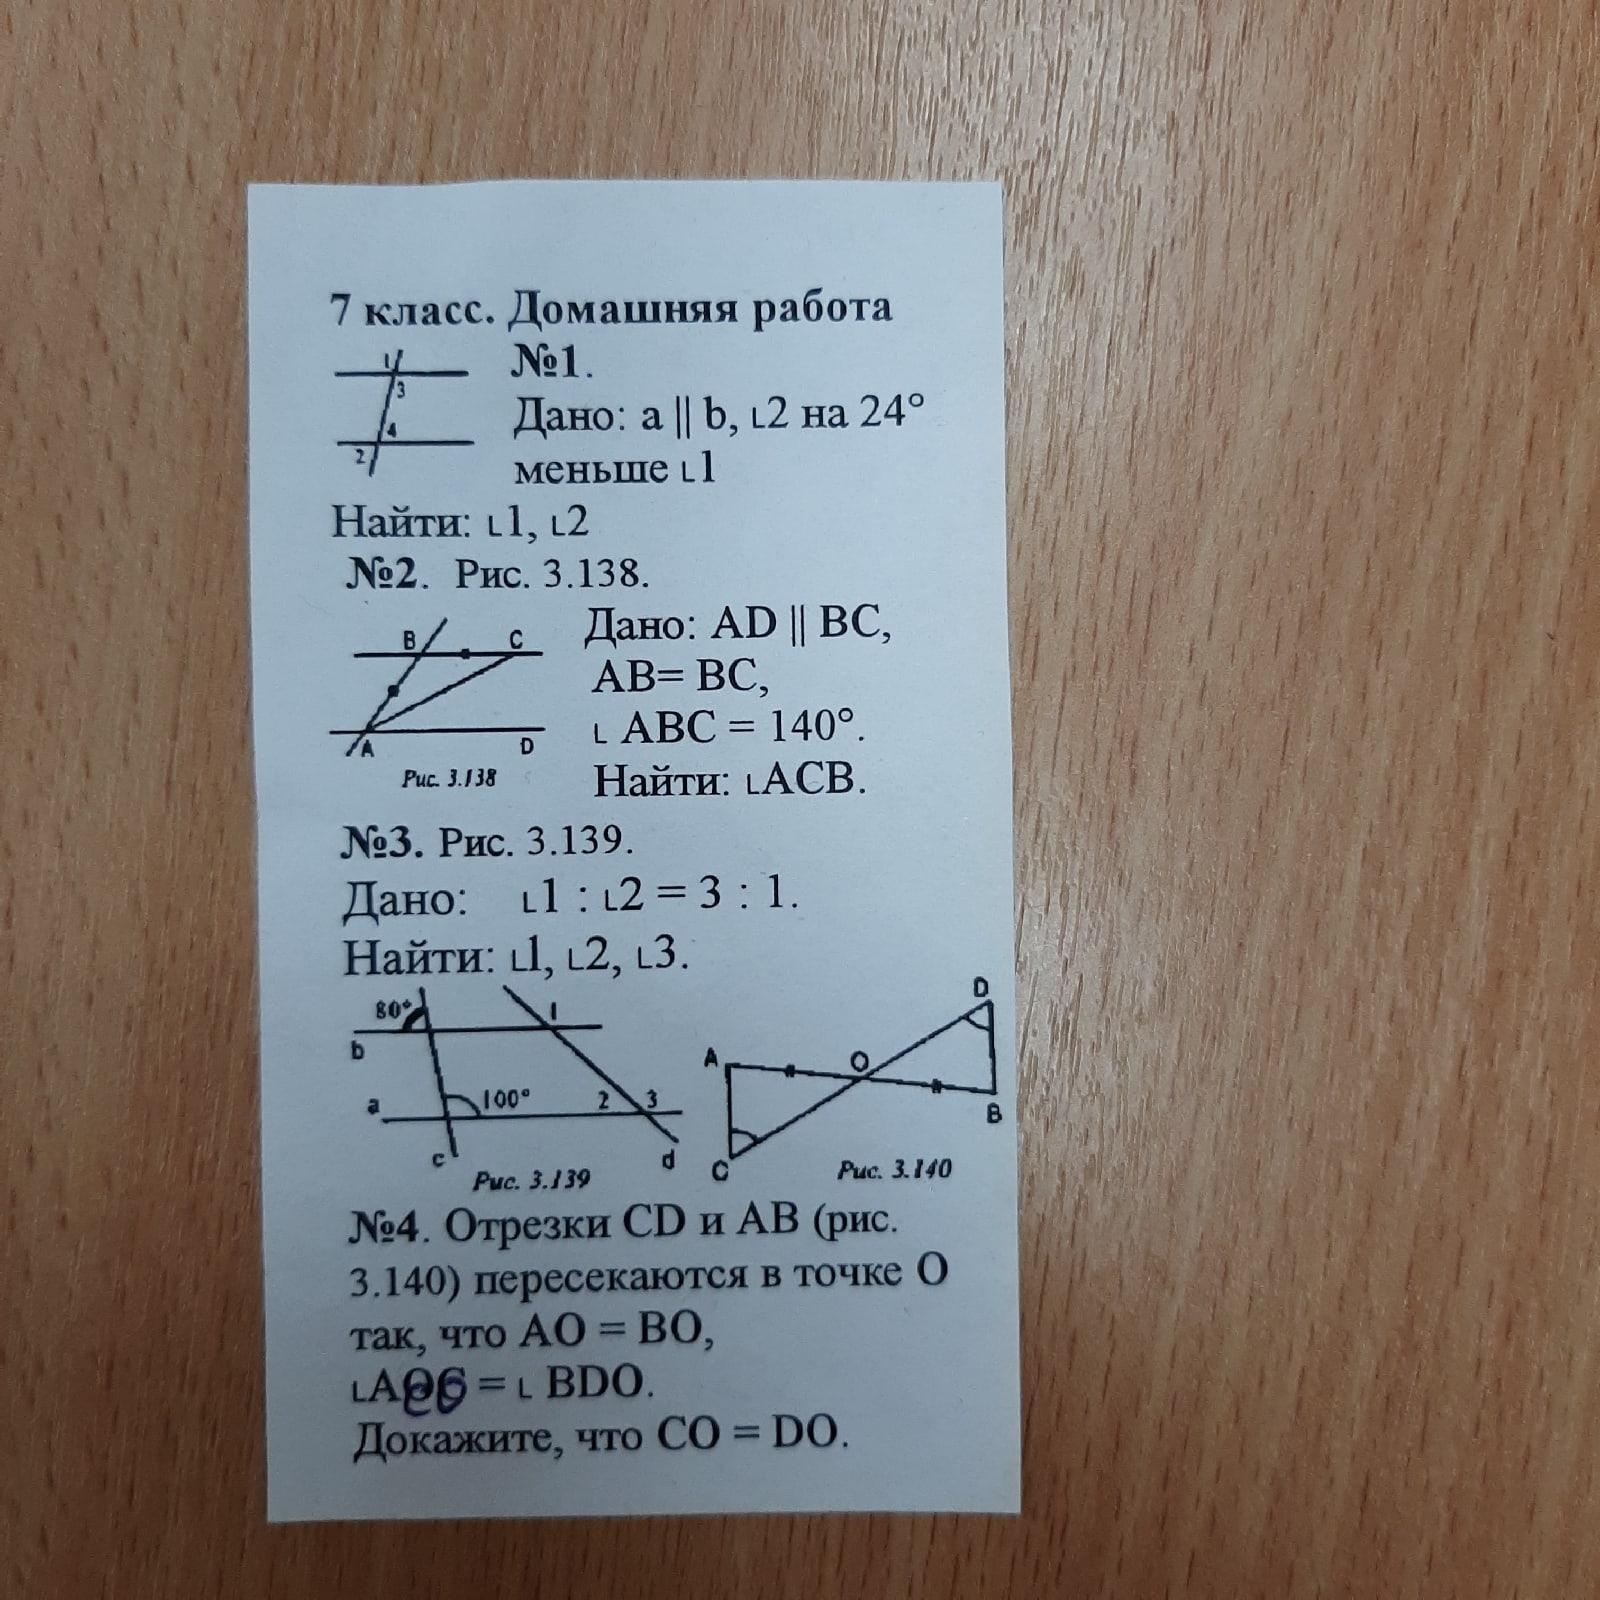 7 класс. Домашняя работа
1
3
4
2
№1.
Дано: a || b, ∟2 на 24°
меньше ∟1
Найти: ∟1, ∟2
№2. Рис. 3.138.
B
C
A
D
Рис. 3.138
Дано: AD || BC,
AB= BC,
∟ ABC = 140°.
Найти: ∟ACB.
№3. Рис. 3.139.
Дано: ∟1 : ∟2 = 3 : 1.
Найти: ∟1, ∟2, ∟3.
80°
1
b
a
100°
2
3
c
d
Рис. 3.139
D
A
O
B
C
Рис. 3.140
№4. Отрезки CD и AB (рис.
3.140) пересекаются в точке O
так, что AO = BO,
∟ACO = ∟ BDO.
Докажите, что CO = DO.